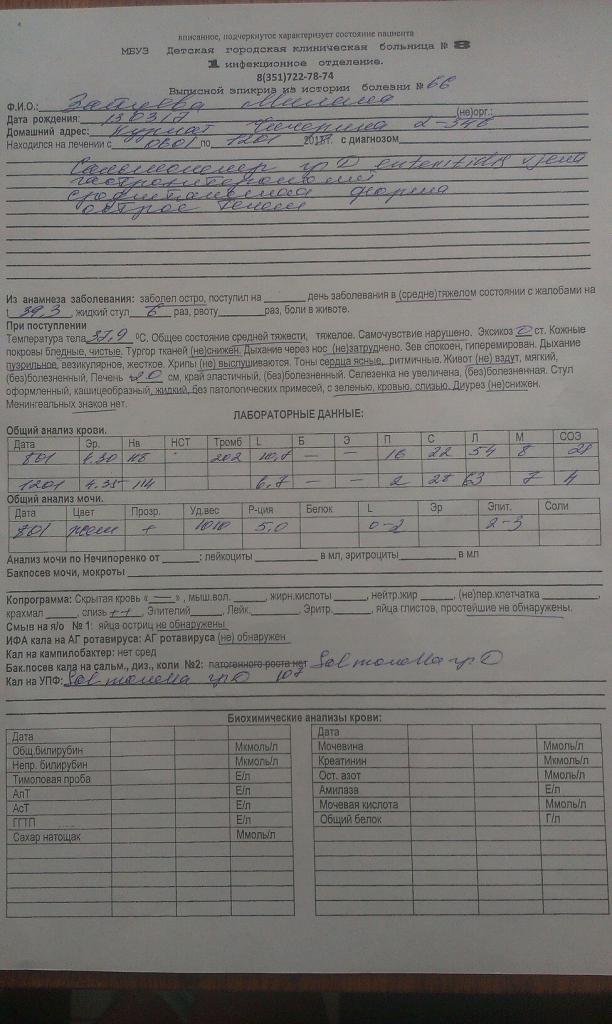 вписанное, подчеркнутое характеризует состояние пациента
МБУЗ Детская городская клиническая больница № 8
1 инфекционное отделение.
8(351)722-78-74
Выписной эпикриз из истории болезни № 66
Ф.И.О.: Милена
Дата рождения: 130317 (не)орг.:
Домашний адрес: Чичерина 2-346
Находился на лечении с 0801 по 1201 201 г. с диагнозом
Сальмонеллез гр D enteritidis
гастроэнтероколит
среднетяжелая форма
острое течение
Из анамнеза заболевания: заболел остро, поступил на день заболевания в (средне)тяжелом состоянии с жалобами на
t 39,3, жидкий стул 6 раз, рвоту раз, боли в животе.
При поступлении
Температура тела 37,9 ºС. Общее состояние средней тяжести, тяжелое. Самочувствие нарушено. Эксикоз 0 ст. Кожные
покровы бледные, чистые. Тургор тканей (не)снижен. Дыхание через нос (не)затруднено. Зев спокоен, гиперемирован. Дыхание
пуэрильное, везикулярное, жесткое. Хрипы (не) выслушиваются. Тоны сердца ясные, ритмичные. Живот (не) вздут, мягкий,
(без)болезненный. Печень 2.0 см, край эластичный, (без)болезненный. Селезенка не увеличена, (без)болезненная. Стул
оформленный, кашицеобразный, жидкий, без патологических примесей, с зеленью, кровью, слизью. Диурез (не)снижен.
Менингеальных знаков нет.
ЛАБОРАТОРНЫЕ ДАННЫЕ:
Общий анализ крови.
Дата Эр. Нв НСТ Тромб L Б Э П С Л М СОЭ
801 4.30 202 10,7 — — 16 22 54 8
1201 4.35 114 6,7 — — 2 28 63 7 4
Общий анализ мочи.
Дата Цвет Прозр. Уд.вес Р-ция Белок L Эр Эпит. Соли
801 + 1010 5,0 0-2 2-3
Анализ мочи по Нечипоренко от : лейкоциты в мл, эритроциты в мл
Бакпосев мочи, мокроты
Копрограмма: Скрытая кровь « — » , мыш.вол. , жирн.кислоты , нейтр.жир , (не)пер.клетчатка ,
крахмал , слизь ++, Эпителий , Лейк. , Эритр. , яйца глистов, простейшие не обнаружены.
Смыв на я/о № 1: яйца остриц не обнаружены
ИФА кала на АГ ротавируса: АГ ротавируса (не) обнаружен
Кал на кампилобактер: нет сред
Бак.посев кала на сальм., диз., коли №2: патогенного роста нет Salmonella гр D
Кал на УПФ: Salmonella гр D 10⁷
Биохимические анализы крови:
Дата
Общ.билирубин Мкмоль/л
Непр. билирубин Мкмоль/л
Тимоловая проба Е/л
АлТ Е/л
АсТ Е/л
ГГТП Е/л
Сахар натощак Ммоль/л
Дата
Мочевина Ммоль/л
Креатинин Мкмоль/л
Ост. азот Ммоль/л
Амилаза Е/л
Мочевая кислота Ммоль/л
Общий белок Г/л